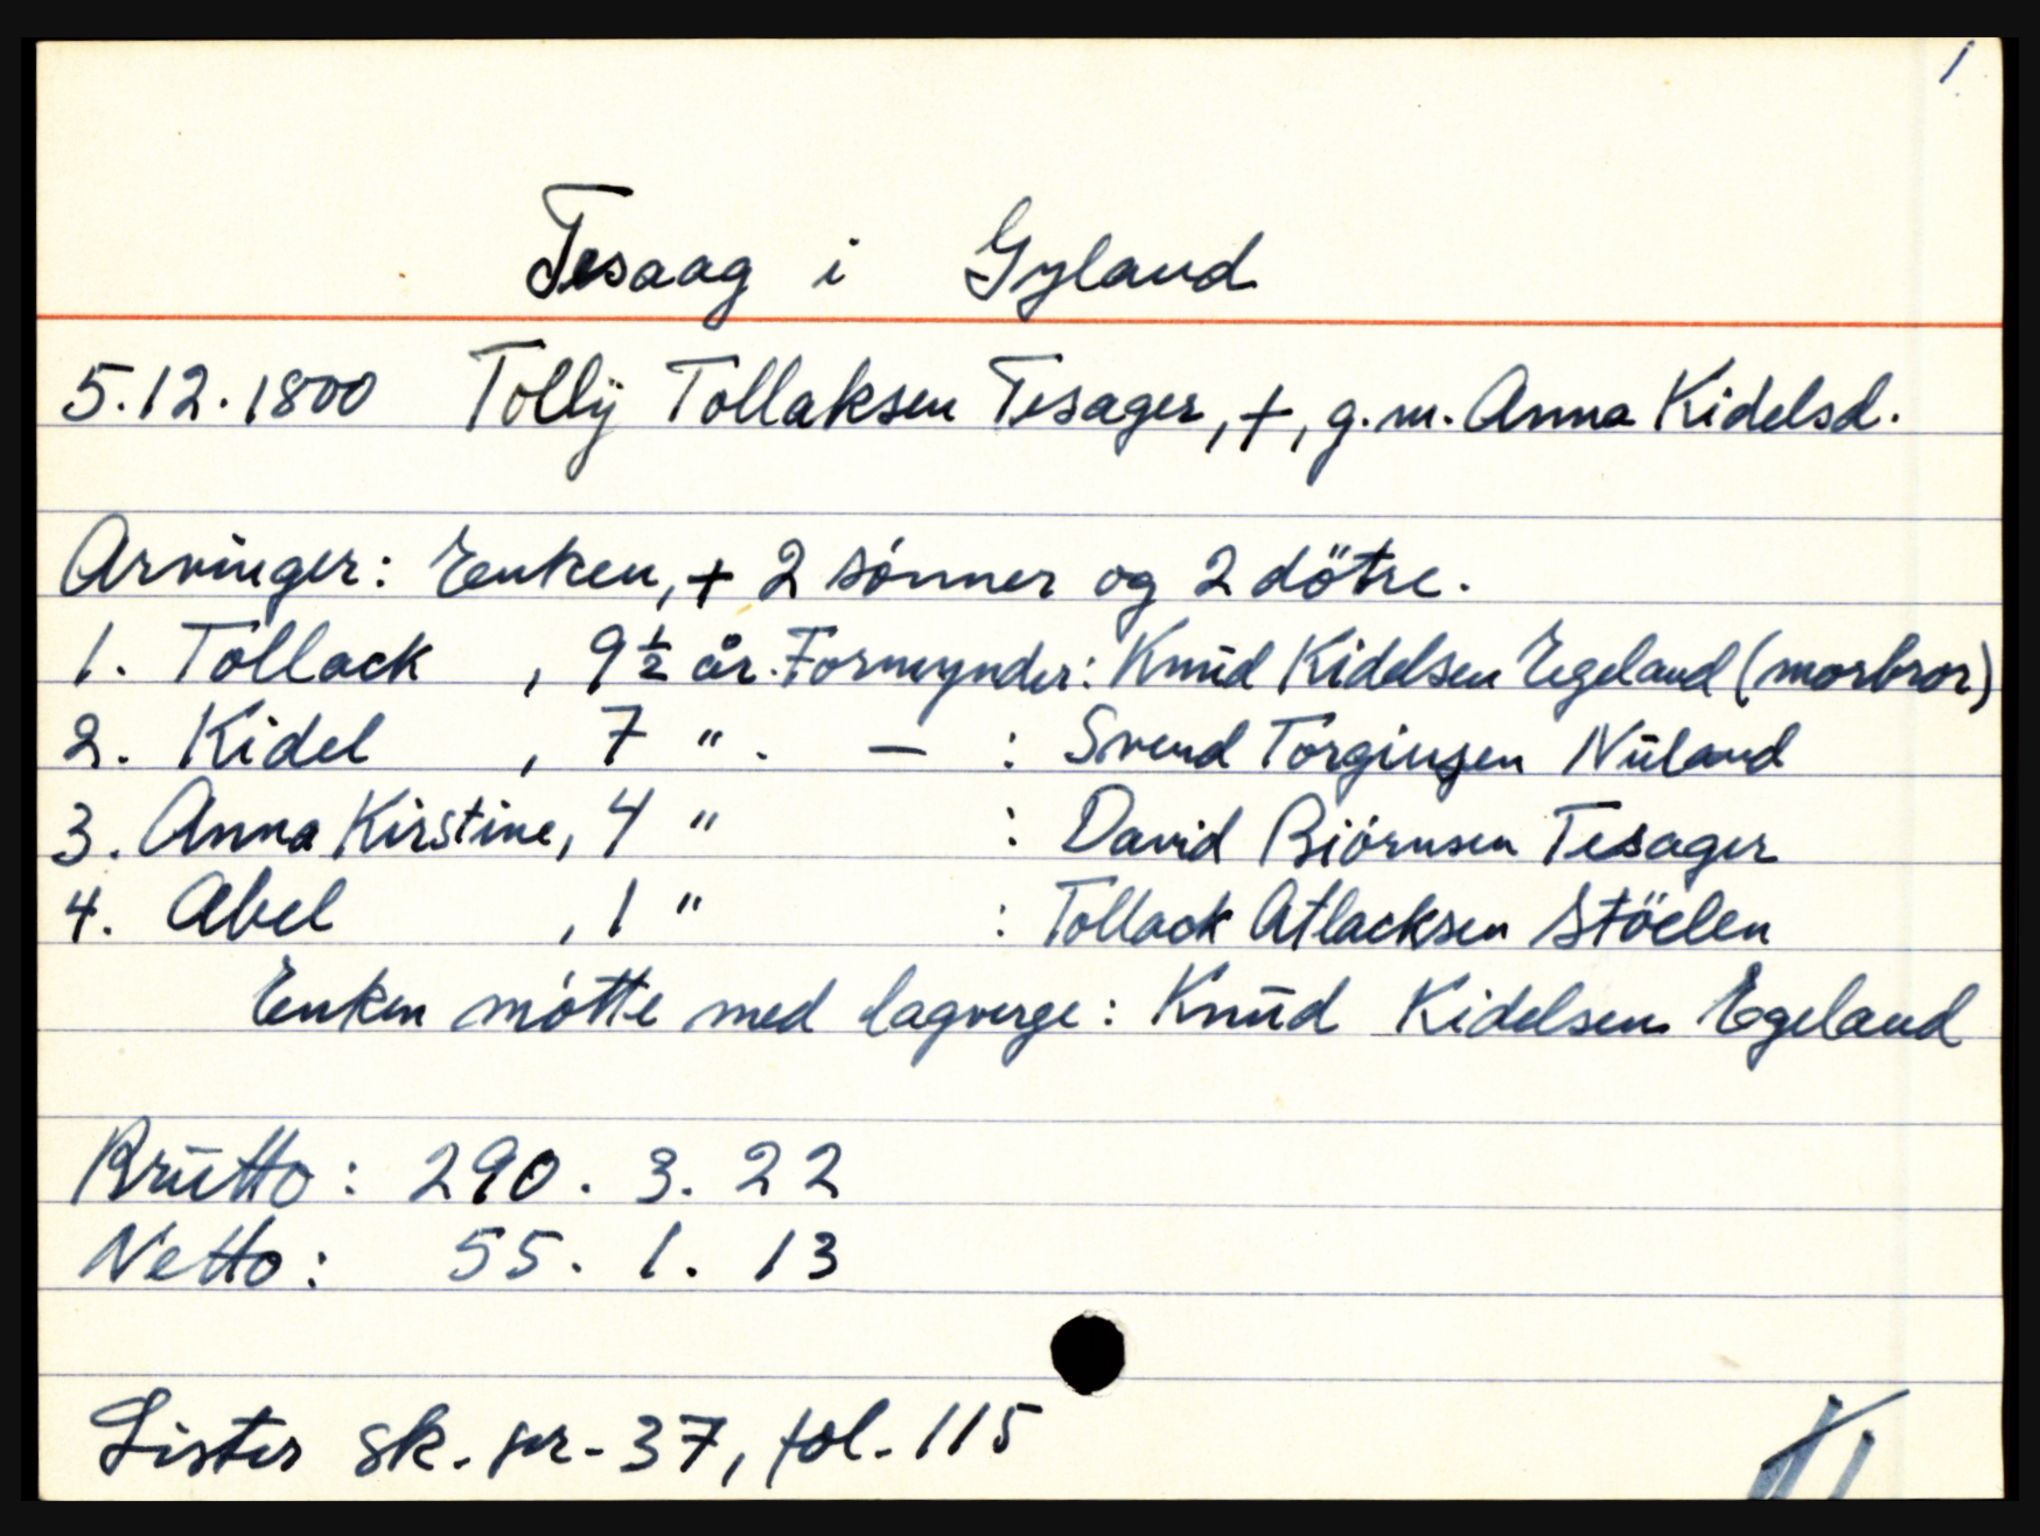 1
Tesaag i Gyland
5.12.1800 Tollÿ Tollaksen Tesager, +, g.m. Anna Kidelsd.
Arvinger: Enken, + 2 sónner og 2 dötre.
1. Tollack , 9½ år. Formynder: Knūd Kidelsen Egeland (morbror)
2. Kidel , 7 " . — : Svend Torginsen Nūland
3. Anna Kirstine, 4 " : David Biórnsen Tesager
4. Abel , 1 " : Tollack Atlacksen Stöelen
Enken mótte med lagverge: Knūd Kidelsen Egeland
Brūtto: 290. 3. 22
Netto: 55. 1. 13
Lister sk. pr. 37, fol. 115